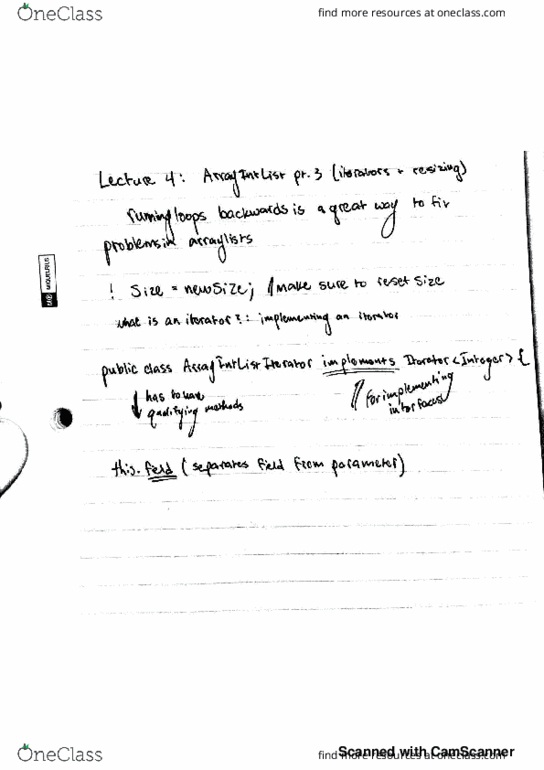 OneClass
find more resources at oneclass.com
Lecture 4: ArrayIntList pt. 3 (iterators + resizing)
running loops backwards is a great way to fix
problems in arraylists
! Size = newSize; //make sure to reset size
what is an iterator?: implementing an iterator
public class ArrayIntListIterator implements Iterator<Integer> {
has to have
qualifying methods
for implementing
interfaces
this.field (separates field from parameter)
OneClass
find more resources at oneclass.com
Scanned with CamScanner